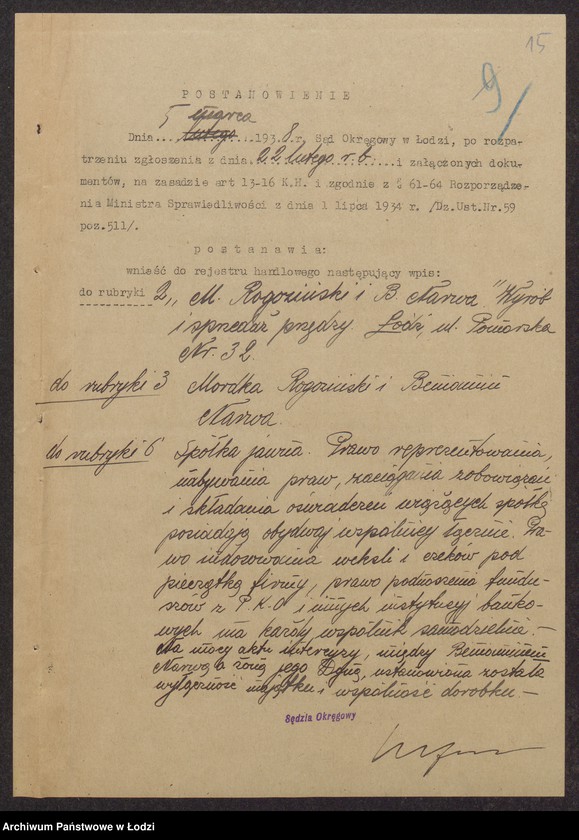 15
9/
POSTANOWIENIE
5 marca
Dnia....lutego...1938.r. Sąd Okręgowy w Łodzi, po rozpa-
trzeniu zgłoszenia z dnia.22 lutego r.b.....i załączonych doku-
mentów, na zasadzie art 13-16 K.H. i zgodnie z § 61-64 Rozporządze-
nia Ministra Sprawiedliwości z dnia 1 lipca 1934 r. /Dz.Ust.Nr.59
poz.511/.
postanawia:
wnieść do rejestru handlowego następujący wpis:
do rubryki 2 „M. Rogoziński i B. Narwa" Wyrób
i sprzedaż przędzy. Łódź, ul. Pomorska
Nr. 32.
do rubryki 3 Mordka Rogoziński i Beniamin
Narwa.
do rubryki 6 Spółka jawna. Prawo reprezentowania,
nabywania praw, zaciągania zobowiązań
i składania oświadczeń wiążących spółkę
posiadają obydwaj wspólnicy łącznie. Pra-
wo indosowania weksli i czeków pod
pieczątką firmy, prawo podnoszenia fundu-
szów z P.K.O i innych instytucyj banko-
wych ma każdy wspólnik samodzielnie.—
Na mocy aktu intercyzy, między Beniaminem
Narwą a żoną jego ustanowiona została
wyłączność majątku i wspólność dorobku.—
Sędzia Okręgowy
Archiwum Państwowe w Łodzi